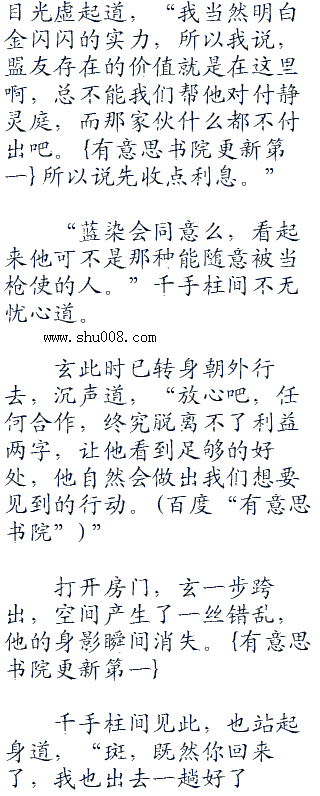 目光虚起道，“我当然明白
金闪闪的实力，所以我说，
盟友存在的价值就是在这里
啊，总不能我们帮他对付静
灵庭，而那家伙什么都不付
出吧。{有意思书院更新第
一}所以说先收点利息。”
“蓝染会同意么，看起
来他可不是那种能随意被当
枪使的人。”千手柱间不无
忧心道。
www.shu008.com
玄此时已转身朝外行
去，沉声道，“放心吧，任
何合作，终究脱离不了利益
两字，让他看到足够的好
处，他自然会做出我们想要
见到的行动。(百度“有意思
书院”)”
打开房门，玄一步跨
出，空间产生了一丝错乱，
他的身影瞬间消失。{有意思
书院更新第一}
千手柱间见此，也站起
身道，“斑，既然你回来
了，我也出去一趟好了